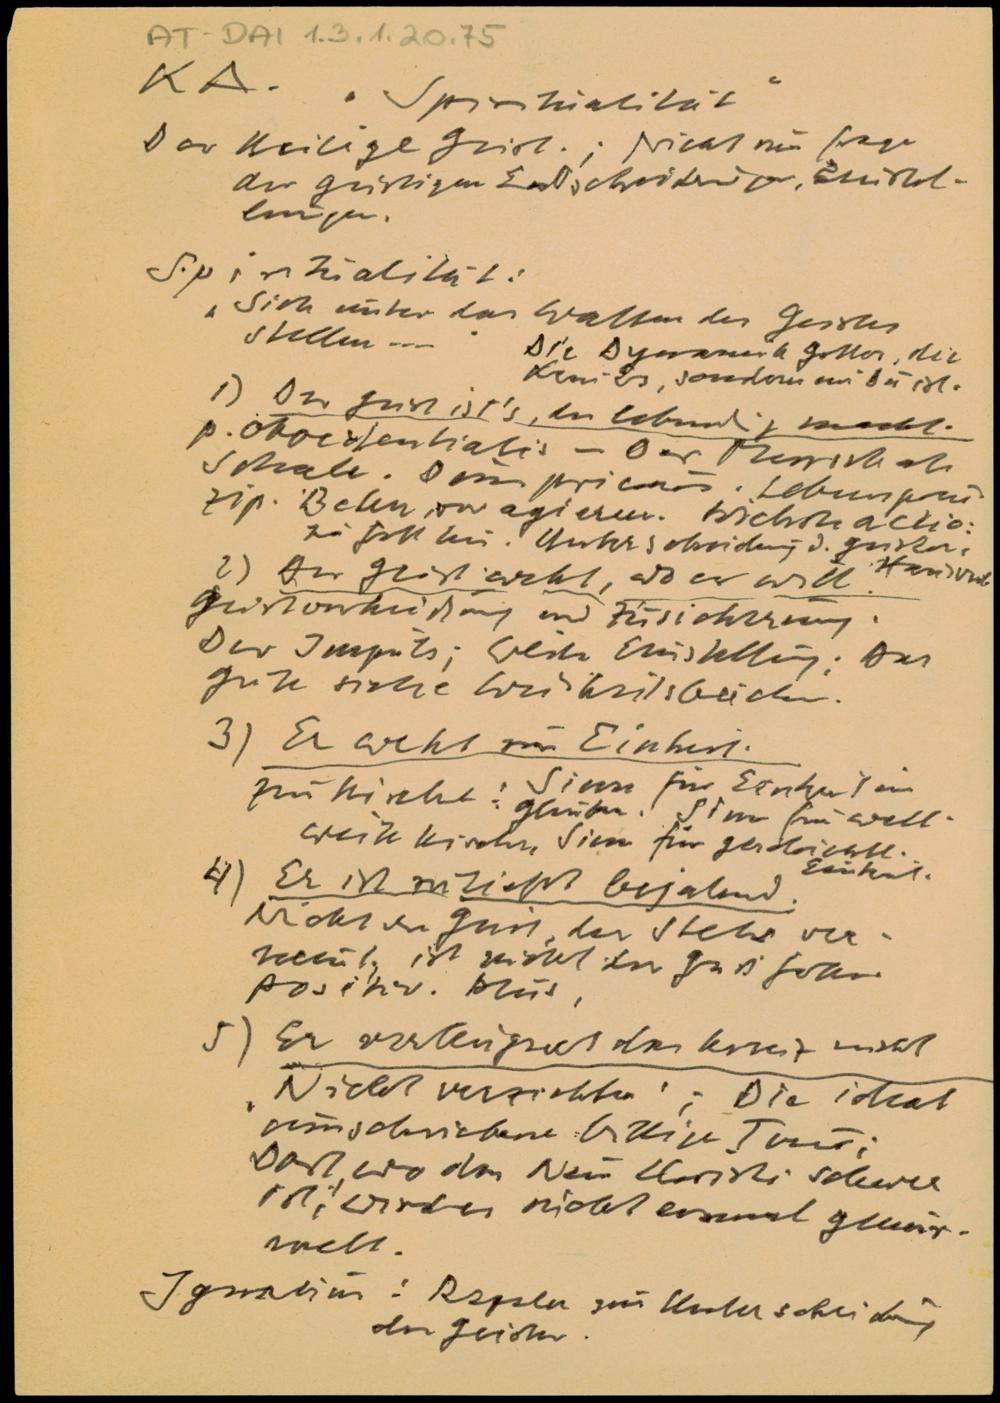 AT-DAI 1.3.1.20.75
KA. „Spiritualität"
Der Heilige Geist. ; Nicht nur Frage
der geistigen Entscheidungen, Einstel-
lungen.
Spiritualität:
„Sich unter das Walten des Geistes
stellen --- "
Die Dynamik Gottes, die
, sondern in Dir ist.
1) Der Geist ist's, der lebendig macht.
p. oboedientialis – Der Mensch als
Schale. Deus primus. Lebensprin
zip. Beten, vor agieren. höchste actio:
zu Gott hin. Unterscheidung d. Geister;
2) Der Geist weht, wo er will.
Geistverheißung und Zusicherung.
Der Impuls; Weite Einstellung; Das
Gute siehe
3) Er weht zur Einheit.
zur Kirche: Sinn für Einheit im
Glauben. Sinn für welt-
weite Kirche, Sinn für geschichtl.
Einheit.
4) Er ist zutiefst bejahend.
Nicht der Geist, der stets ver-
neint, ist nicht der Geist Gottes
Positiv. Plus,
5) Er verleugnet das Kreuz nicht
„Nicht verzichten"; Die ideal
umschriebene billige Tour;
Dort, wo das Nein Christi schwer
ist, wird es nicht einmal gemur-
melt.
Ignatius: Regeln zur Unterscheidung
der Geister.